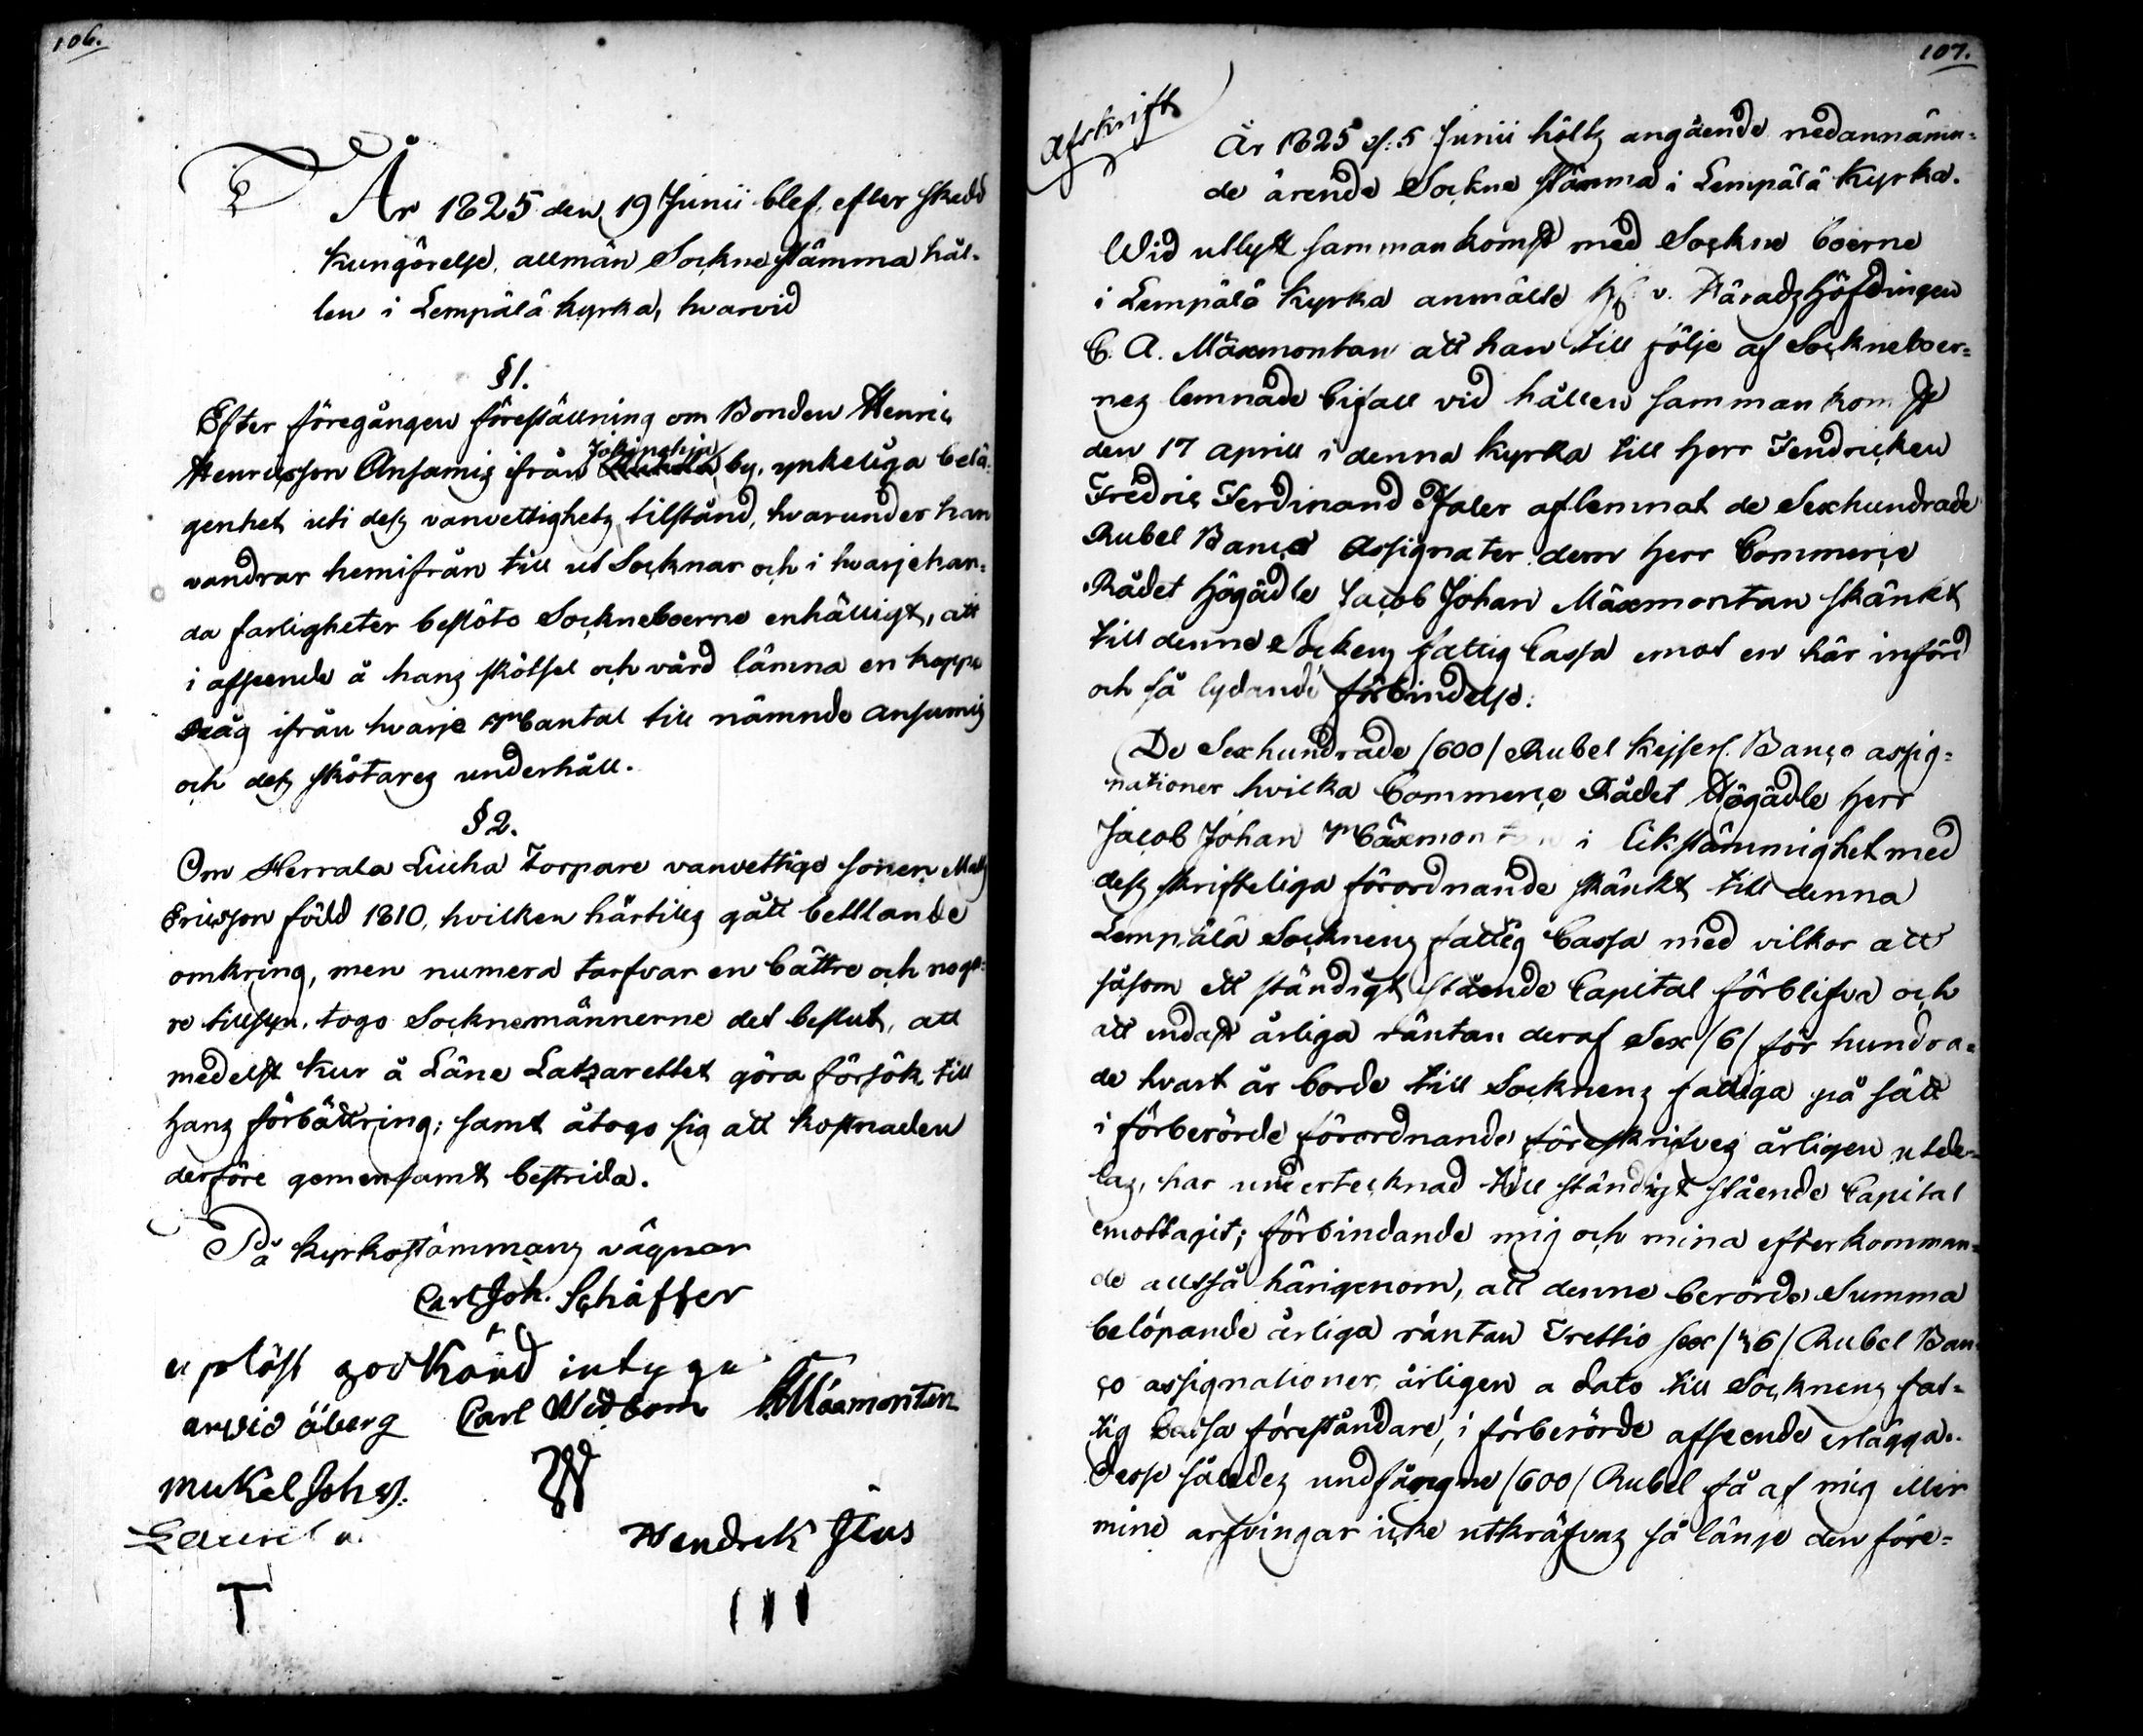 106.
År 1825 den 19 Junii blef, efter skedd
kungörelse, allmän Sockne stämma hål-
len i Lempälä kyrka, hvarvid
§1.
Efter föregången föreställning om Bonden Henric
Jokipohja
Henricsson Ansamis ifrån by, ynkeliga belä-
genhet uti dess vanvettighets tilstånd, hvarunder han
vandrar hemifrån till ut Socknar och i hvarjehan-
da farligheter beslöto Sockneboerne enhälligt, att
i afseende å hans skötsel och vård lämna en kappe
Råg ifrån hvarje Mantal till nämnde Ansamis
och dess skötares underhåll.
§2.
Om Herrala Liuha Torpare vanvettige sonen Matts
Ericsson född 1810, hvilken härtills gått bettlande
omkring, men numera tarfvar en bättre och noga-
re tillsyn, togo Socknemännerne det beslut, att
medelst kur å Läne Latzarettet göra försök till
hans förbättring; samt åtogo sig att kostnaden
derföre gemensamt bestrida.
På kyrkostämmans vägnar
Carl Joh. Schäffer
uplöst godkänd intyga
arvid öberg Carl Widbom CAMäxmontan
Mickel Johss.
Laurila
Hendrik Jlus
T III
107.
Afskrift
År 1825 d: 5 Junii hölts angående nedannämn-
de ärende Sockne stämma i Lempälä Kyrka.
Wid utlyst sammankomst med Sockne boerne
i Lempälä Kyrka anmälte v. Häradshöfdingen
C. A. Mäxmontan att han till följe af Sockneboer-
nes lemnade bifall vid hållen sammankomst
den 17 Aprill i denna kyrka till Herr Fendricken
Fredric Ferdinand Taler aflemnat de Sexhundrade
Rubel Banco Assignater dem Herr Commerce
Rådet Högädle Jacob Johan Mäxmontan skänkt
till denne Sockens fattig Cassa emot en här införd
och så lydande förbindelse:
De Sexhundrade /600/ Rubel Kejserl. Banco assig-
nationer hvilka Commerce Rådet Högädle Herr
Jacob Johan Mäxmontan i likstämmighet med
dess skrifteliga förordnande skänkt till denna
Lempälä Socknens fattig Cassa med vilkor att
såsom ett ständigt stående Capital förblifva och
att endast årliga räntan deraf Sex /6/ för hundra-
de hvart år borde till Socknens fattiga på sätt
i förberörde förordnande föreskrifves årligen utde-
las, har undertecknad till ständigt stående Capital
emottagit; förbindande mig och mina efterkomman-
de alltså härigenom, att denne berörde Summa
belöpande årliga räntan Trettio sex /36/ Rubel Ban-
co assignationer årligen a dato till Socknens fat-
tig Cassa föreståndare, i förberörde afseende erlägga.
Desse således undfångne /600/ Rubel få af mig eller
mine arfvingar icke utkräfvas så länge den före-